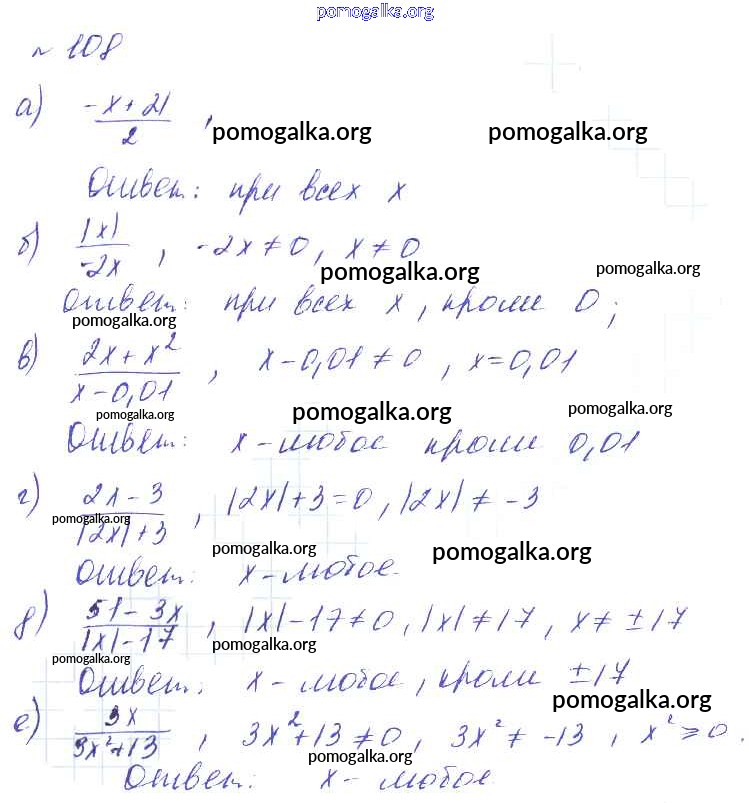 pomogalka.org
№ 108
а) (-x + 21)/2 , pomogalka.org pomogalka.org
Ответ: при всех x
б) |x|/(-2x) , -2x ≠ 0, x ≠ 0
pomogalka.org pomogalka.org
Ответ: при всех x, кроме 0;
pomogalka.org
в) (2x + x²)/(x - 0,01) , x - 0,01 ≠ 0 , x = 0,01
pomogalka.org pomogalka.org pomogalka.org
Ответ: x - любое кроме 0,01
г) (2x - 3)/(|2x| + 3) , |2x| + 3 = 0, |2x| ≠ -3
pomogalka.org pomogalka.org pomogalka.org
Ответ: x - любое.
д) (51 - 3x)/(|x| - 17) , |x| - 17 ≠ 0, |x| ≠ 17 , x ≠ ±17
pomogalka.org pomogalka.org
Ответ: x - любое, кроме ±17
pomogalka.org
е) 3x/(3x² + 13) , 3x² + 13 ≠ 0, 3x² ≠ -13 , x² ≥ 0.
pomogalka.org
Ответ: x - любое